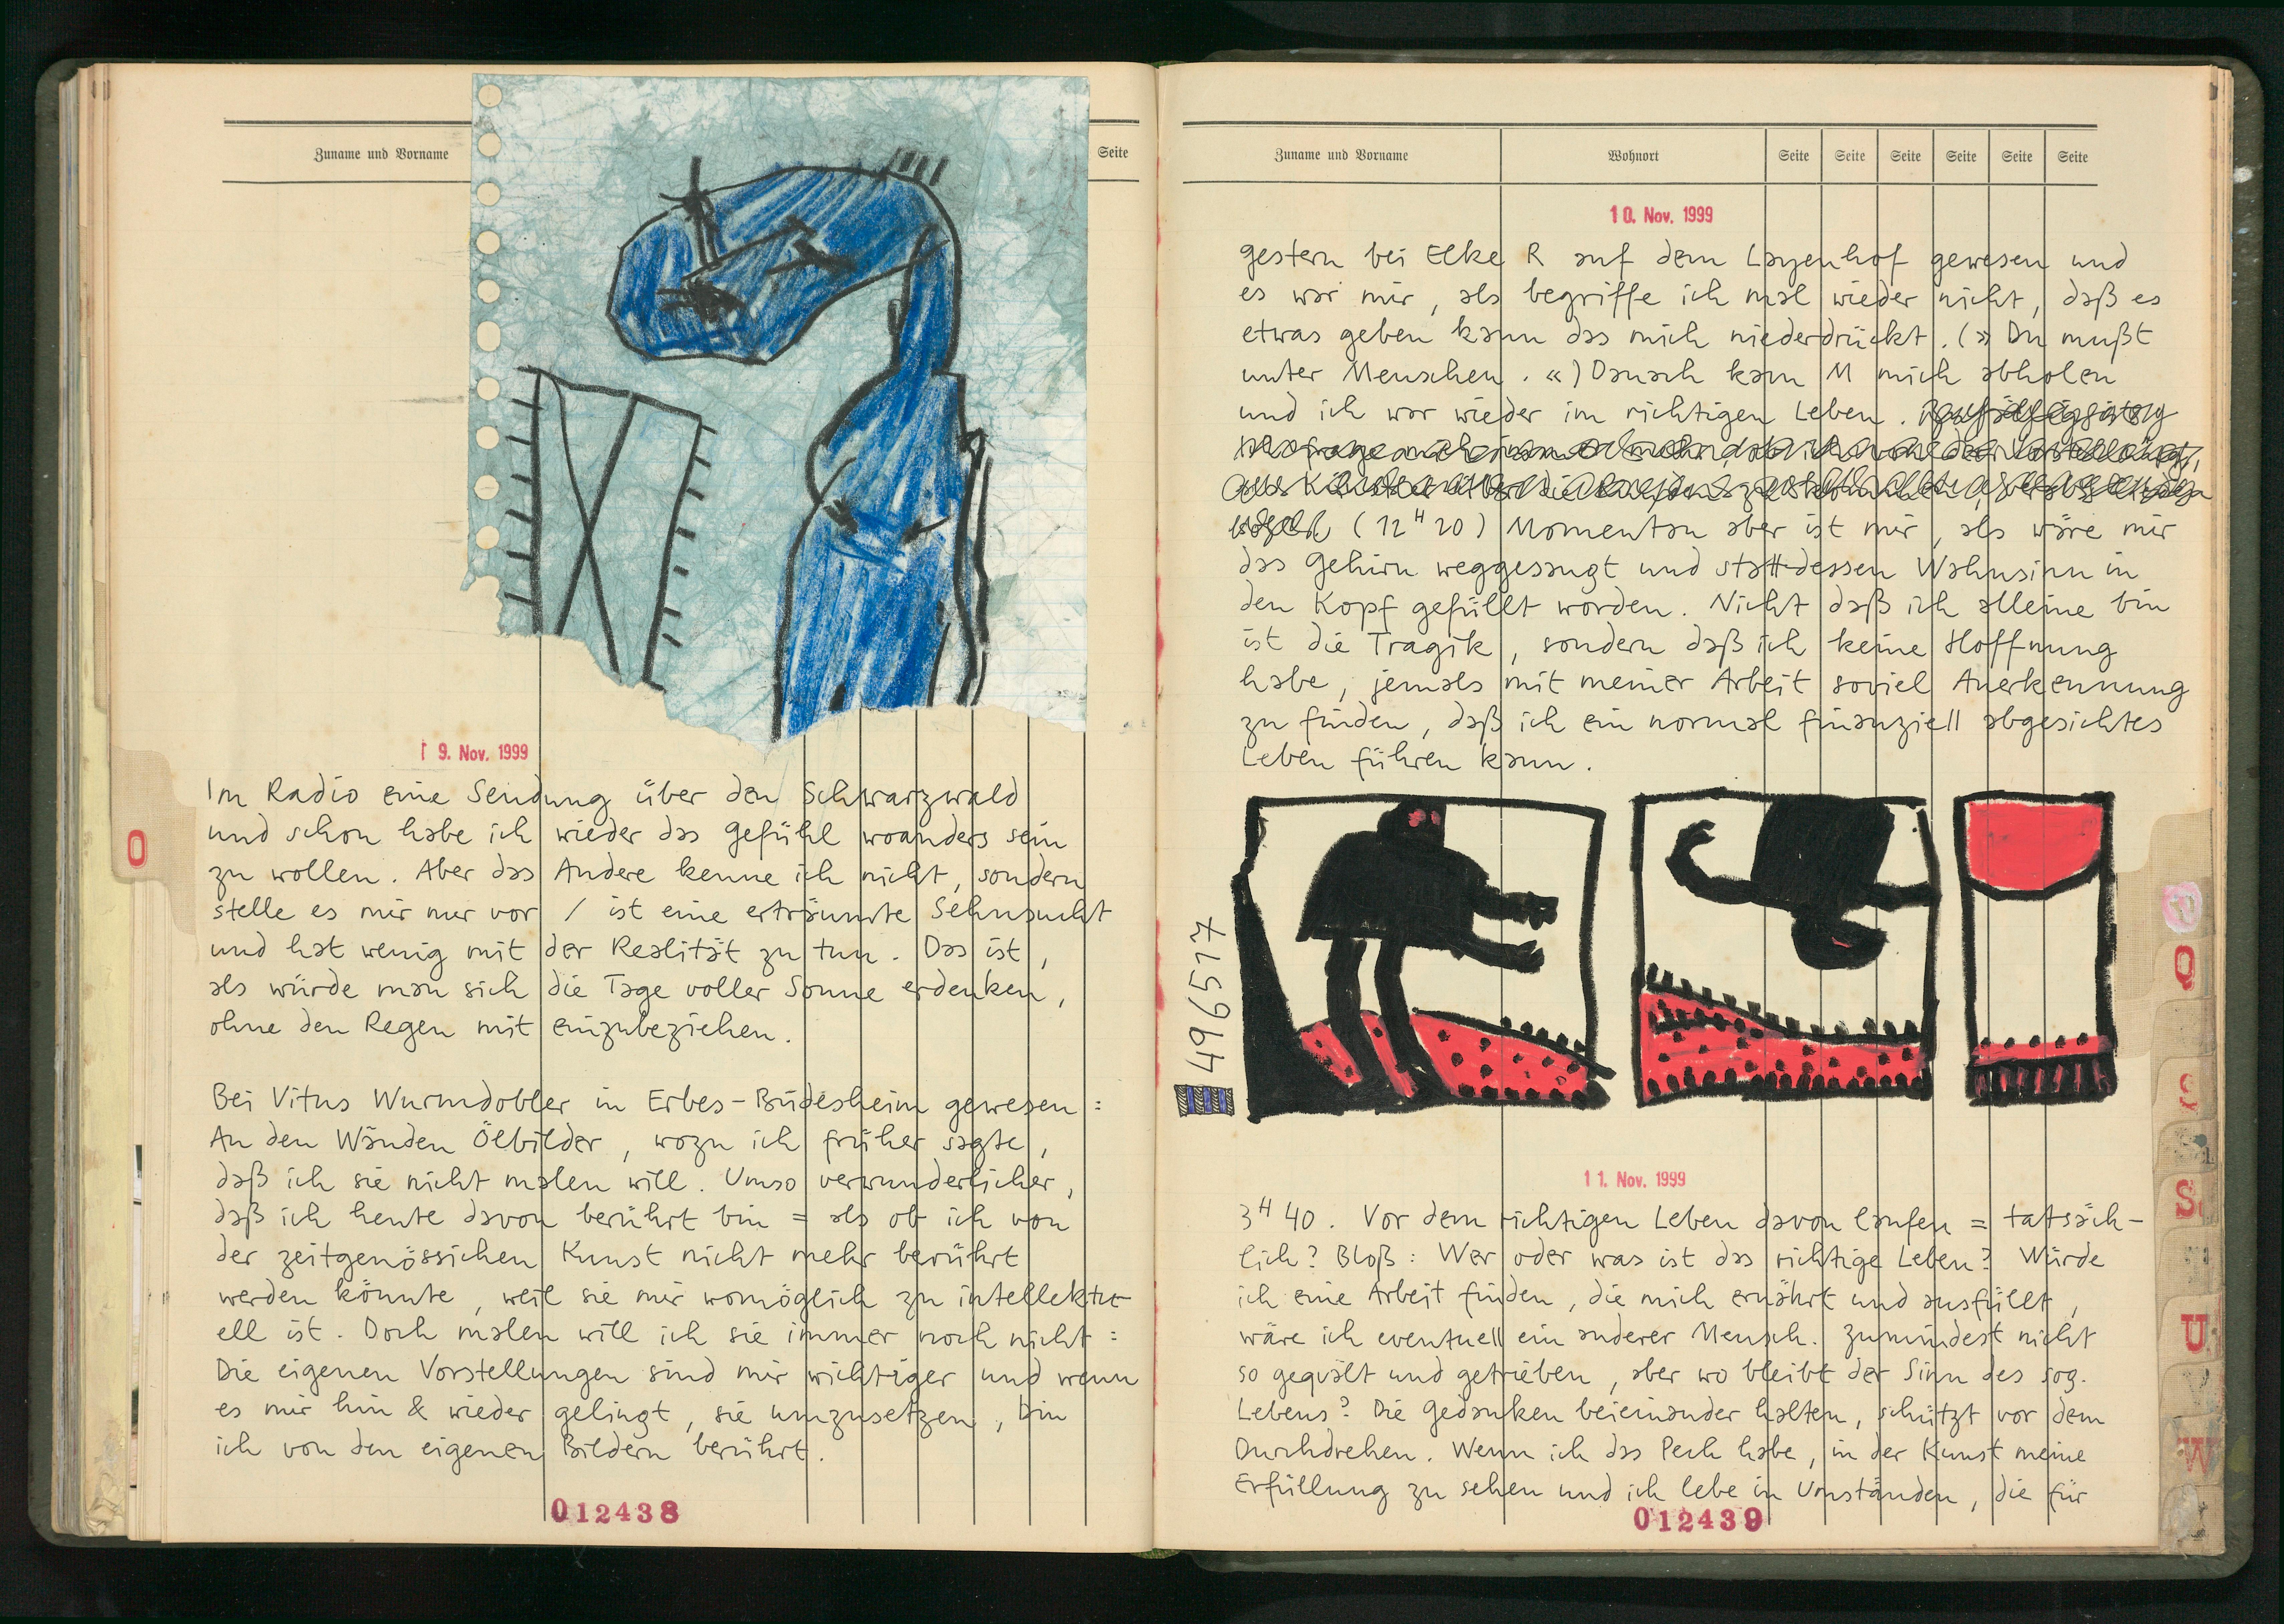 Zuname und Vorname
Seite
9. Nov. 1999
Im Radio eine Sendung über den Schwarzwald
und schon habe ich wieder das Gefühl woanders sein
zu wollen. Aber das Andere kenne ich nicht, sondern
stelle es mir nur vor / ist eine erträumte Sehnsucht
und hat wenig mit der Realität zu tun. Das ist,
als würde man sich die Tage voller Sonne erdenken,
ohne den Regen mit einzubeziehen.
Bei Vitus Wurmdobler in Erbes-Büdesheim gewesen :
An den Wänden Ölbilder, wozu ich früher sagte,
daß ich sie nicht malen will. Umso verwunderlicher,
daß ich heute davon berührt bin = als ob ich von
der zeitgenössichen Kunst nicht mehr berührt
werden könnte, weil sie mir womöglich zu intellektu-
ell ist. Doch malen will ich sie immer noch nicht :
Die eigenen Vorstellungen sind mir wichtiger und wenn
es mir hin & wieder gelingt, sie umzusetzen, bin
ich von den eigenen Bildern berührt.
012438
O
Zuname und Vorname Wohnort Seite Seite Seite Seite Seite Seite
10. Nov. 1999
gestern bei Elke R auf dem Layenhof gewesen und
es war mir, als begriffe ich mal wieder nicht, daß es
etwas geben kann das mich niederdrückt. (» Du mußt
unter Menschen. «) Danach kam M mich abholen
und ich war wieder im richtigen Leben.
(12 H 20) Momentan aber ist mir, als wäre mir
das Gehirn weggesaugt und stattdessen Wahnsinn in
den Kopf gefüllt worden. Nicht daß ich alleine bin
ist die Tragik, sondern daß ich keine Hoffnung
habe, jemals mit meiner Arbeit soviel Anerkennung
zu finden, daß ich ein normal finanziell abgesichtes
Leben führen kann.
496517
11. Nov. 1999
3 H 40. Vor dem richtigen Leben davon laufen = tatsäch-
lich? Bloß : Wer oder was ist das richtige Leben? Würde
ich eine Arbeit finden, die mich ernährt und ausfüllt,
wäre ich eventuell ein anderer Mensch. Zumindest nicht
so gequält und getrieben, aber wo bleibt der Sinn des sog.
Lebens? Die Gedanken beieinander halten, schützt vor dem
Durchdrehen. Wenn ich das Pech habe, in der Kunst meine
Erfüllung zu sehen und ich lebe in Umständen, die für
012439
Q
S
U
W